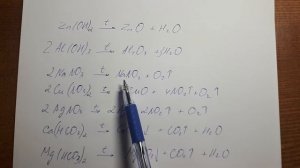 Zn(OH)₂ →t ZnO + H₂O
2Al(OH)₃ →t Al₂O₃ + 3H₂O
2KNO₃ →t O₂↑
2Cu(NO₃)₂ →t NO₂↑ + O₂↑
2AgNO₃ →t 2NO₂↑ + O₂↑
Ca(HCO₃)₂ →t CO₂↑ + H₂O
Mg(HCO₃)₂ →t + CO₂↑ + H₂O